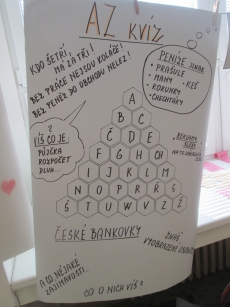 AZ KVÍZ
KDO ŠETŘÍ
MÁ ZA TŘI!
BEZ PRÁCE NEJSOU KOLÁČE!
BEZ PENĚZ DO OBCHODU NELEZ!
PENÍZE JINAK
• PRAŠULE
• MANY • KEŠ
• KORUNKY
• CHECHTÁKY
?
VÍŠ CO JE:
PŮJČKA
ROZPOČET
DLUH...
A
B C
Č D E
F G H CH
I J K L M
N O P R Ř S
Š T U V W Z Ž
REKLAMA
ČESKÉ BANKOVKY
ZNÁŠ
VYOBRAZENÉ
A CO NĚJAKÉ
ZAJÍMAVOSTI...
CO O NICH VÍŠ?